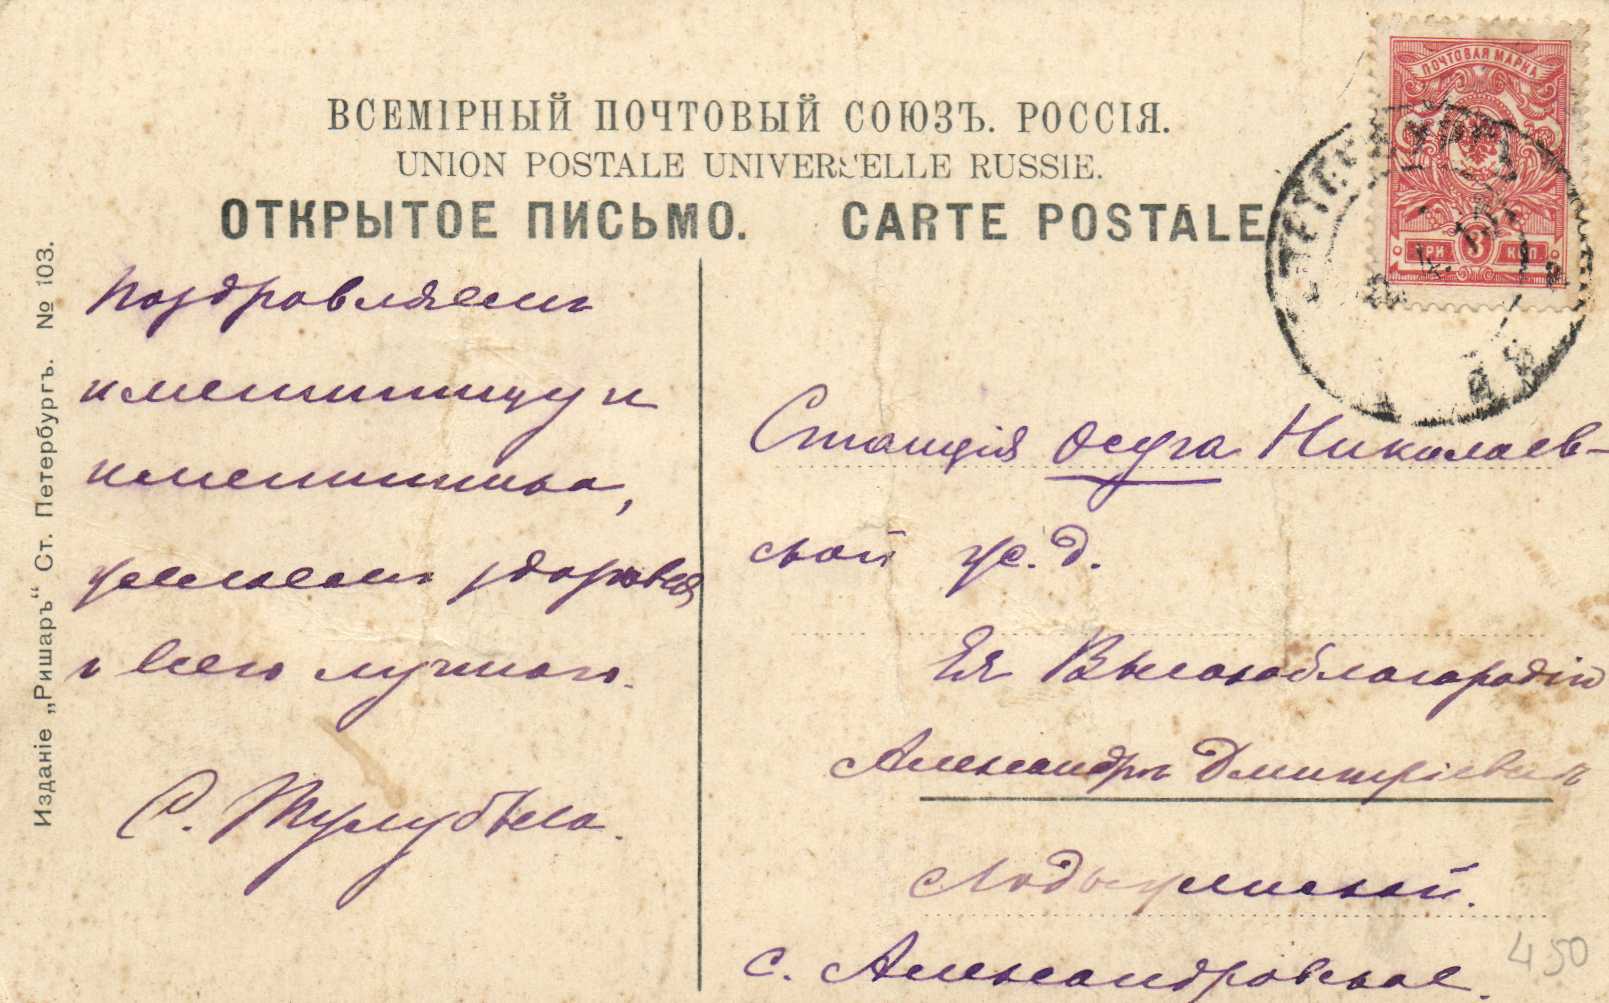 ВСЕМІРНЫЙ ПОЧТОВЫЙ СОЮЗЪ. РОССІЯ.
UNION POSTALE UNIVERSELLE RUSSIE.
ОТКРЫТОЕ ПИСЬМО. CARTE POSTALE
ПОЧТОВАЯ МАРКА
ТРИ 3 КОП
Изданіе „Ришаръ“ Ст. Петербургъ. № 103.
Поздровляемъ
именинницу и
именинника,
желаемъ здоровья
и всего лучшаго.
С. Тулубьева.
Станція Осуга Николаев-
ской ж. д.
Ея Высокоблагородію
Александрѣ Дмитріевнѣ
Лодыженской.
с. Александровское.
450